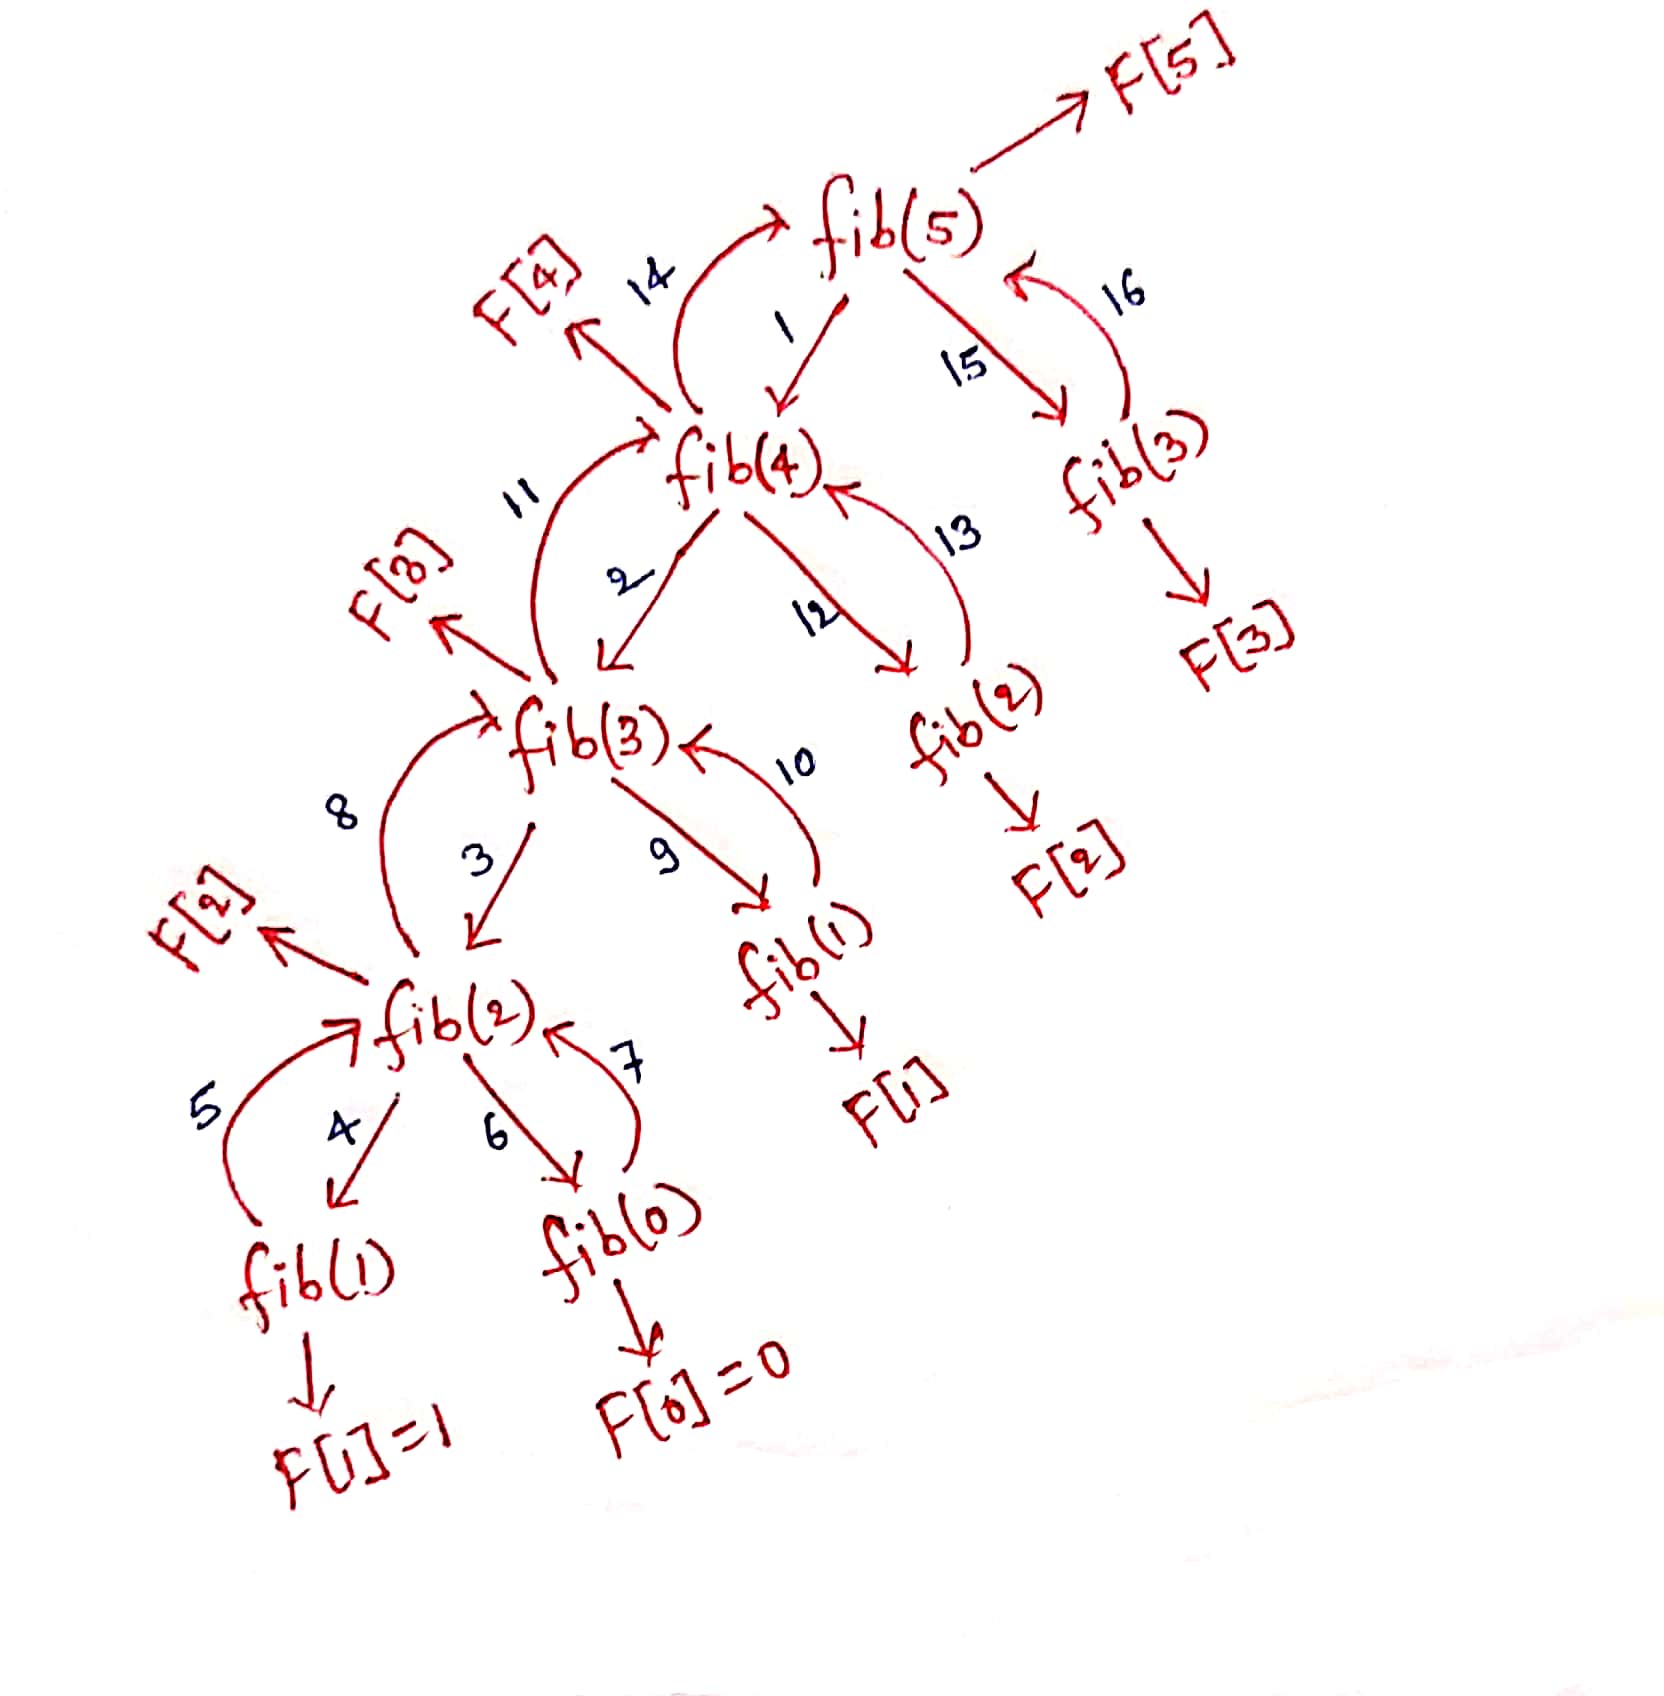 F[5]
fib(5)
F[4]
14
1
15
16
fib(4)
fib(3)
11
F[3]
2
12
13
F[3]
fib(3)
fib(2)
8
3
9
10
F[2]
F[2]
fib(2)
fib(1)
5
4
6
7
F[1]
fib(1)
fib(0)
F[1]=1
F[0]=0